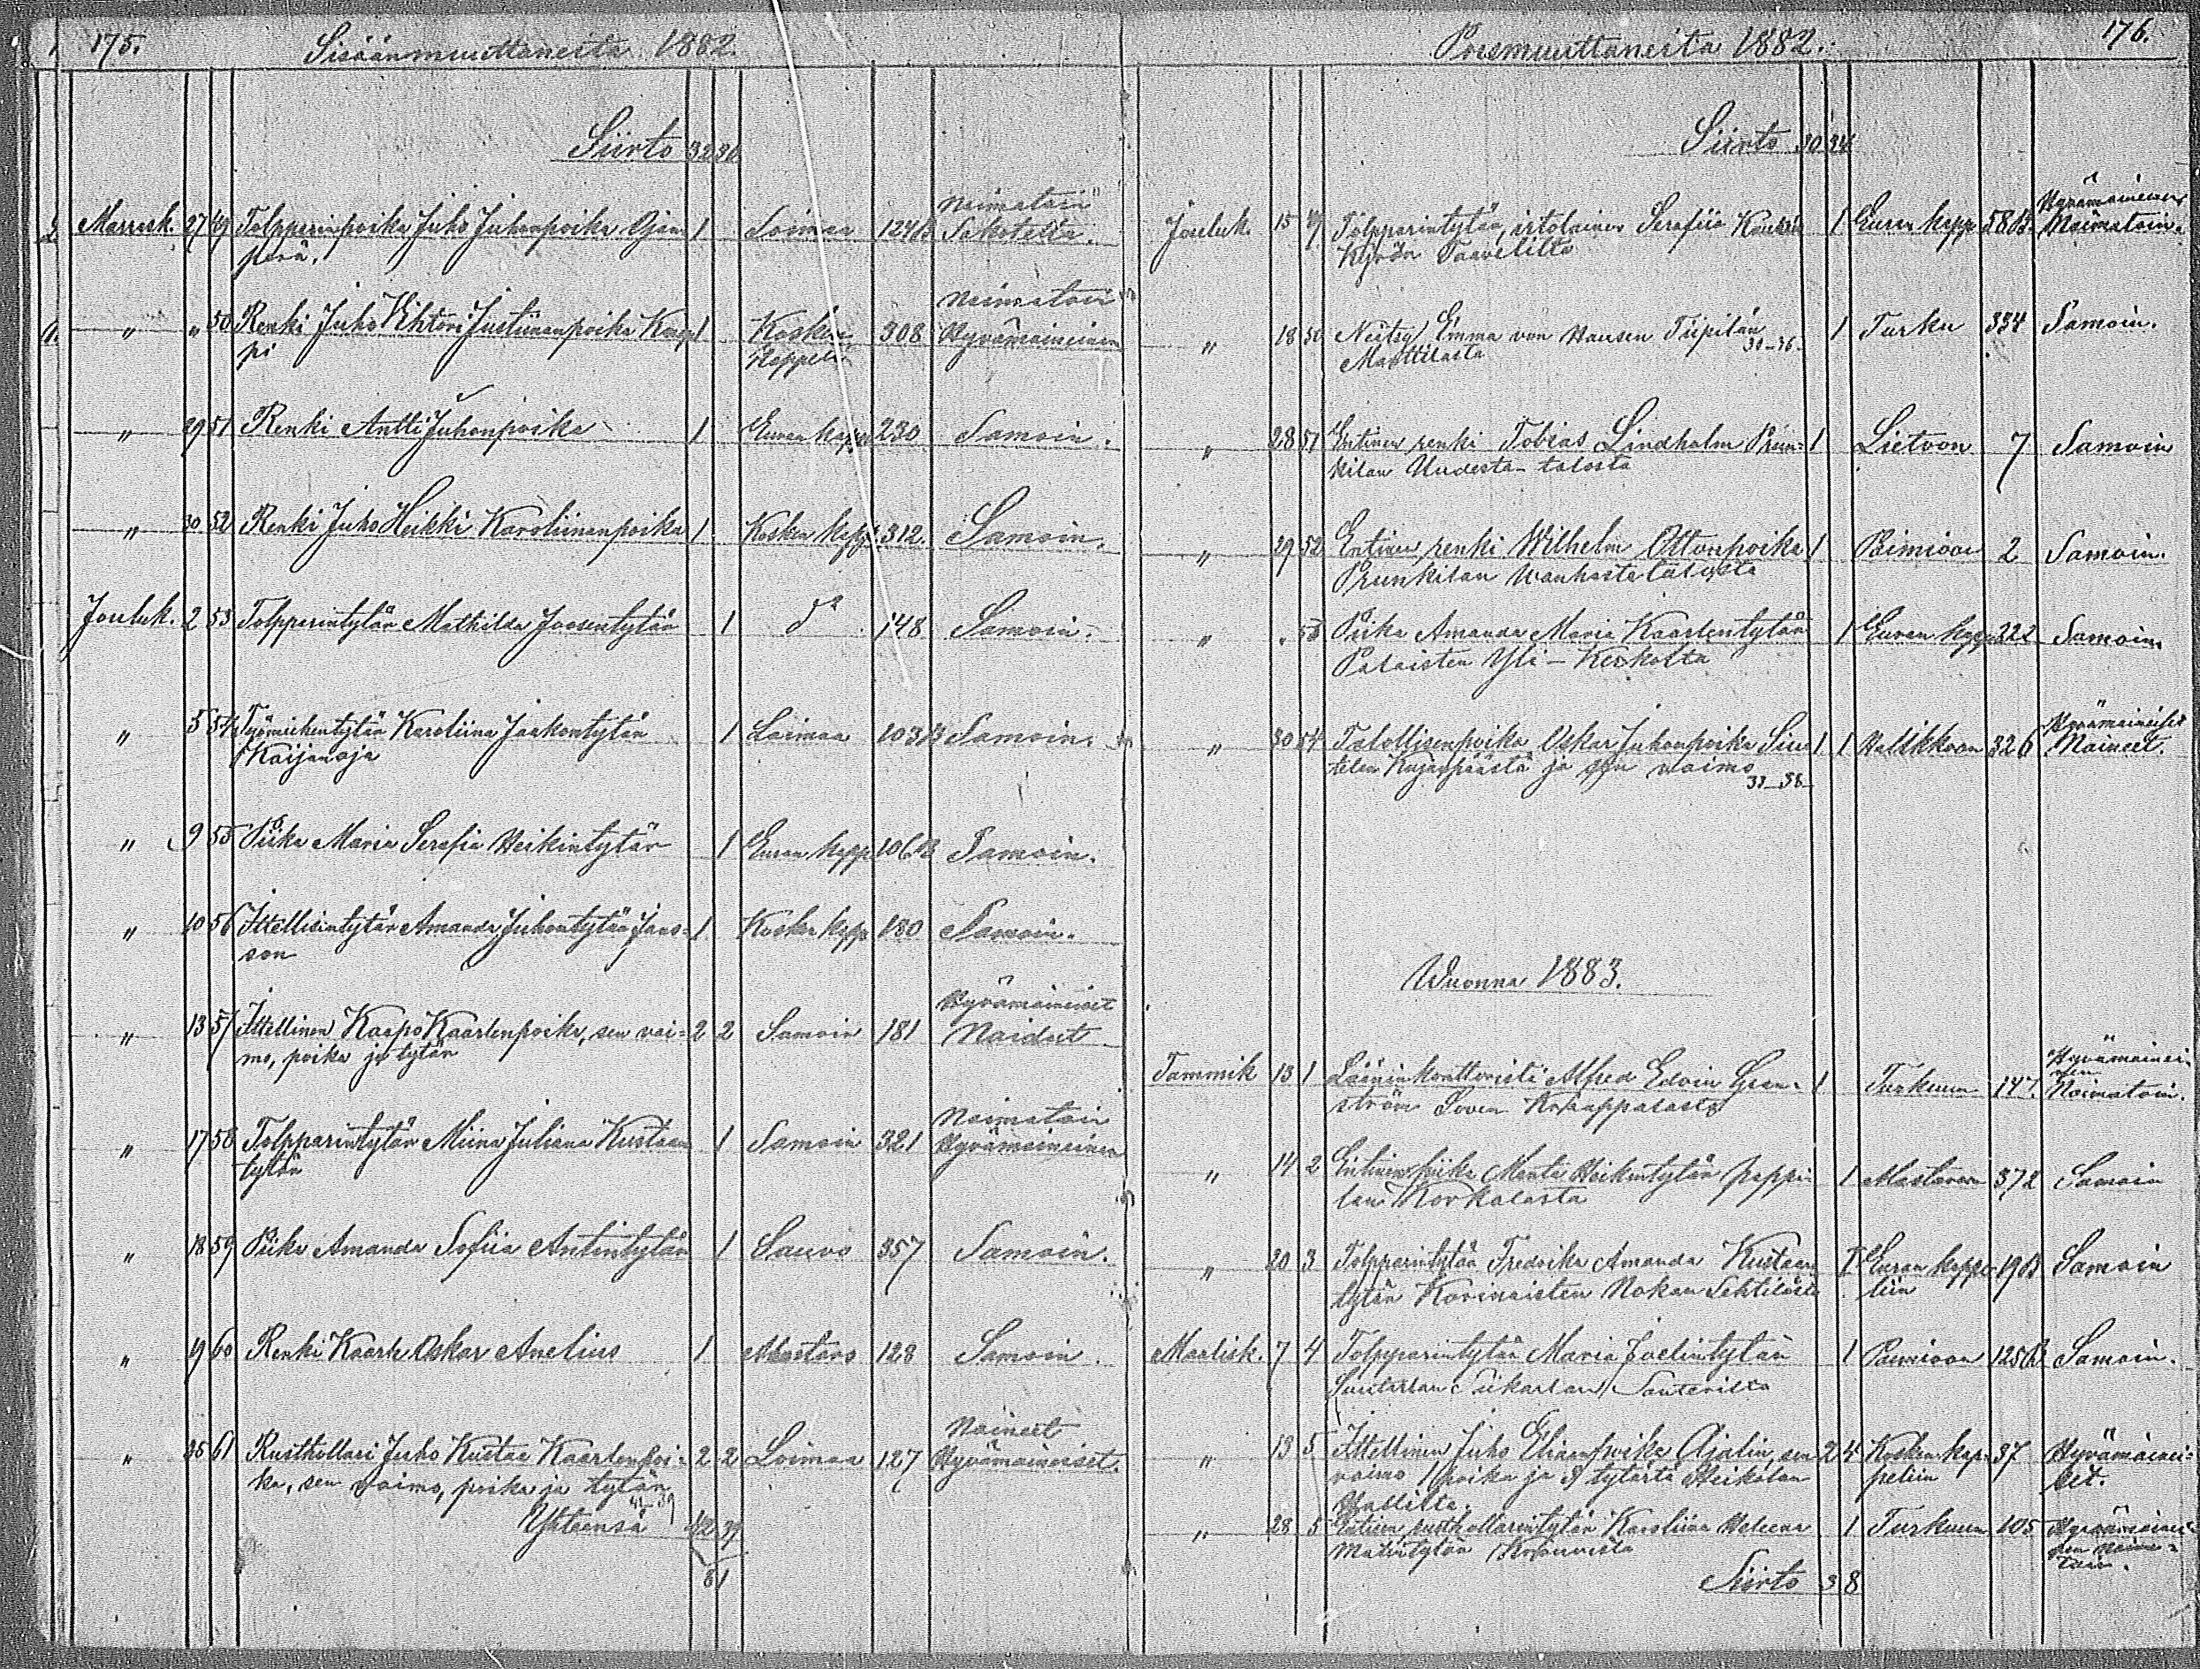 175.
Sisäänmuuttaneita 1882.
Siirto 32 30
Marrask. 27 49 Tolpparinpoika Juho Juhonpoika Ojan- 1 Loimaa 124B Naimatoin
perä. Sakotettu.
" " 50 Renki Juho Vihtori Justiinanpoika Kaup- 1 Kosken 308 Naimatoin
pi Kappeli Hyvämaineinen
" 29 51 Renki Antti Juhonpoika 1 Euran kapp. 230 Samoin.
" 30 52 Renki Juho Heikki Karoliinanpoika 1 Kosken kapp. 312. Samoin.
Jouluk. 2 53 Tolpparintytär Mathilda Joosentytär 1 d:o 148 Samoin.
" 5 54 Työmiehentytär Karoliina Jaakontytär 1 Loimaa 103B Samoin.
Kaijanoja
" 9 55 Piika Maria Serafia Heikintytär 1 Euran kapp. 106B Samoin.
" 10 56 Itsellisintytär Amanda Juhontytär Jans- 1 Kosken kapp 180 Samoin.
son
" 13 57 Itsellinen Kaapo Kaarlenpoika, sen vai- 2 2 Samoin 181 Hyvämaineiset
mo, poika ja tytär Naidut
" 17 58 Tolpparintytär Miina Juliana Kustaan 1 Samoin 321 Naimatoin
tytär Hyvämaineinen
" 18 59 Piika Amanda Sofiia Antintytär 1 Sauvo 357 Samoin.
" 19 60 Renki Kaarle Oskar Anelius 1 Mastaro 128 Samoin.
" 61 Rusthollari Juho Kustaa Kaarlenpoi- 2 2 Loimaa 127 Naineet
ka, sen vaimo, poika ja tytär Hyvämaineiset.
42 39
Yhteensä 42 39
81
176.
Poismuuttaneita 1882.
Siirto 30 34
Jouluk. 15 49 Tolpparintytär, irtolainen Serafiia 1 Euran kapp. 58B. Hyvämaineinen
Kyrön Taavelilta Naimatoin.
" 18 50 Neitsy Emma von Hausen Tiipilän 1 Turku 334 Samoin.
Marttilasta
" 28 51 Entinen renki Tobias Lindholm Prun- 1 Lietoon 7 Samoin
kilan Uudesta-talosta
" 29 52 Entinen renki Wilhelm Ottonpoika 1 Paimioon 2 Samoin.
Prunkilan Wanhasta talosta
" " 53 Piika Amanda Maria Kaarlentytär 1 Euran kapp. 222 Samoin.
Palaisten Yli-Kerkolta
" 30 54 Talollisenpoika Oskar Juhonpoika 1 1 Halikkoon 326 Hyvämaineiset
Kujanpäästä ja sen waimo Naineet.
Wuonna 1883.
Tammik 13 1 Lääninkonttoristi Alfred Edvin Gran- 1 Turkuun 147. Hyvämainei-
ström nen
Naimatoin.
" 14 2 Entinen piika Manta Heikintytär pappi- 1 Mastaroon 372 Samoin
lan Korkalasta
" 20 3 Tolpparintytär Fredrika Amanda Kustaan 1 Euran kappe- 19B Samoin
tytär Kormaisten Nokan liin
Maalisk. 7 4 Tolpparintytär Maria Joelintytär 1 Paimioon 125B Samoin.
13 5 Itsellinen Juho Elianpoika Ajalin, sen 2 4 Kosken kap- 37 Hyvämainei-
vaimo, poika ja tytärtä Heikolan peliin set.
" 28 5 Entinen rusthollarintytär Karoliina Helena 1 Turkuun 105
Matintytär
Siirto 3 8